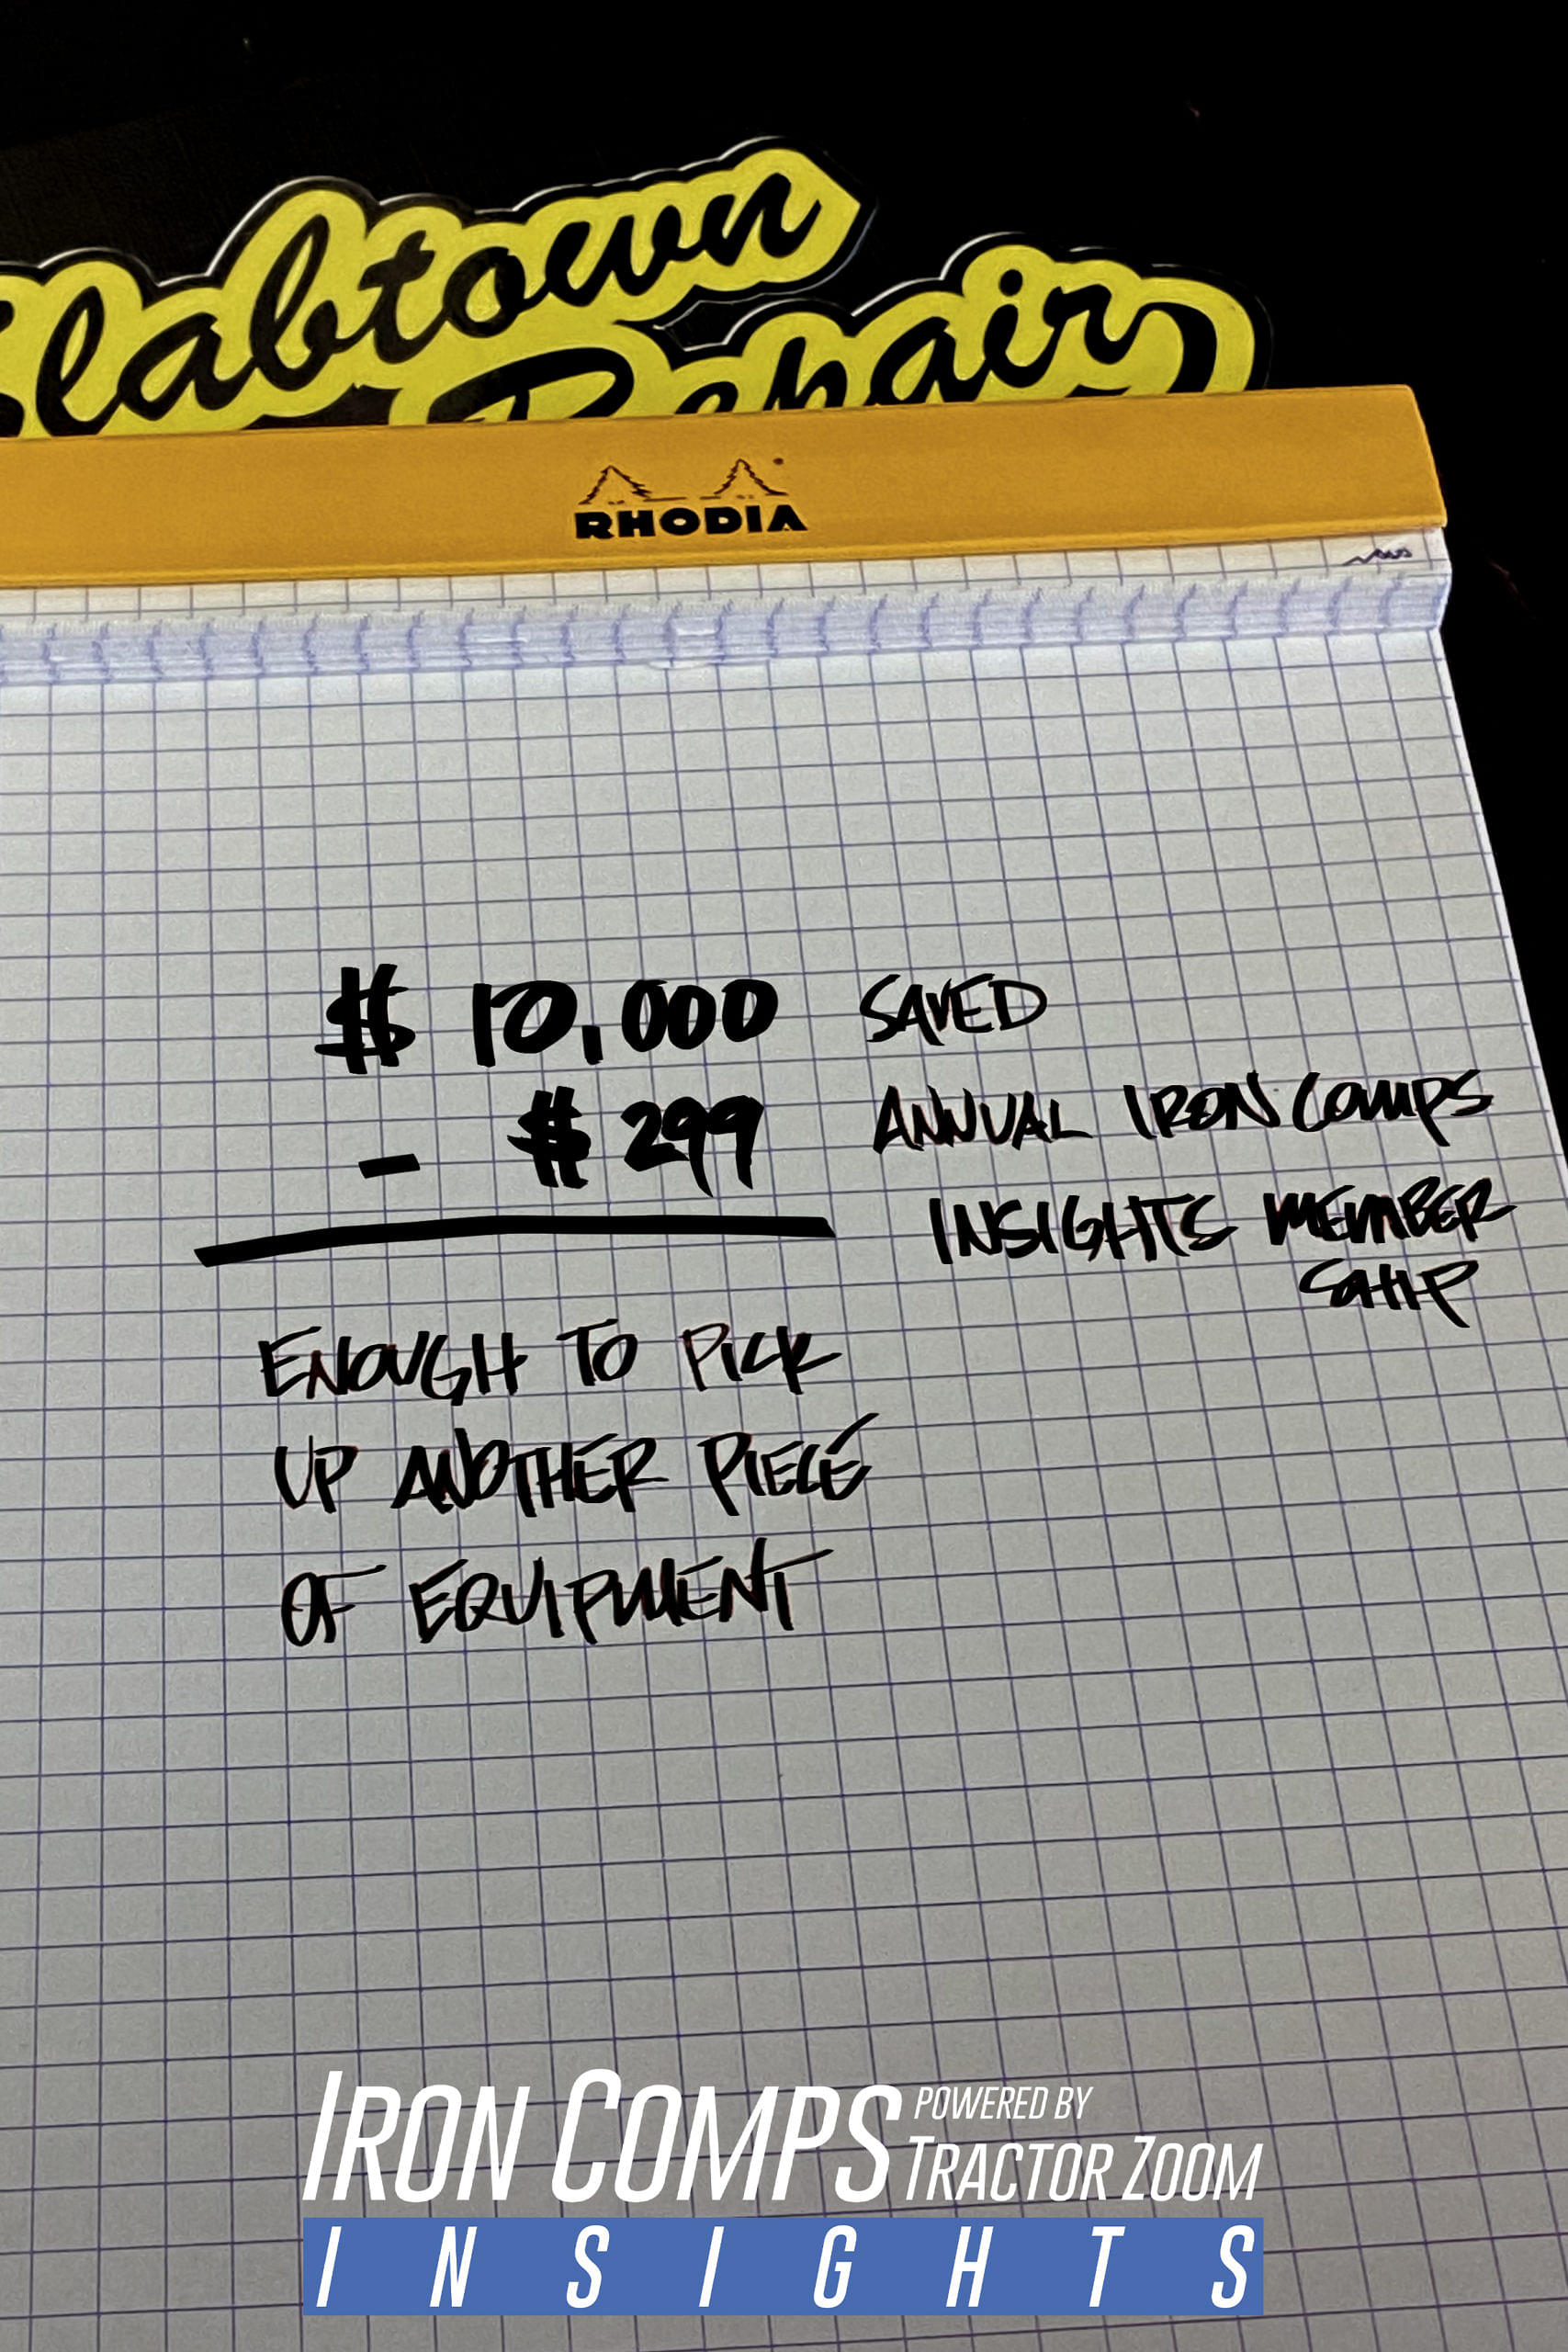 Slabtown
Repair
RHODIA
$ 10,000 SAVED
- $ 299 ANNUAL IRON COMPS
INSIGHTS MEMBER
SHIP
ENOUGH TO PICK
UP ANOTHER PIECE
OF EQUIPMENT
IRON COMPS POWERED BY
TRACTOR ZOOM
INSIGHTS